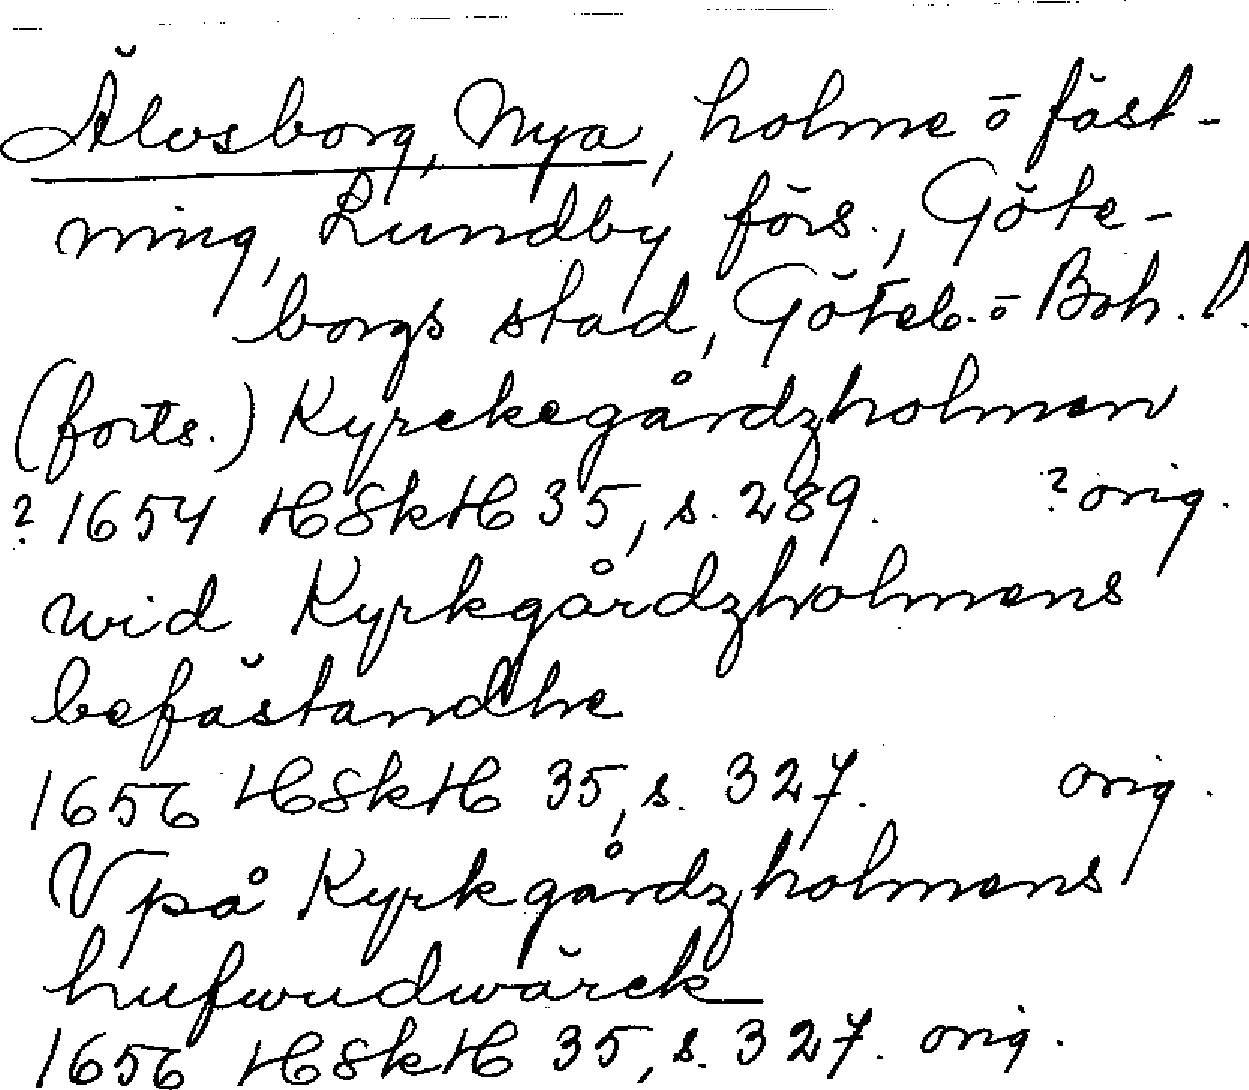 Älvsborg, Nya, holme ō fäst-
ning, Lundby förs., Göte-
borgs stad, Göteb. ō Boh. l.
(forts.) Kyrckegårdzholmen
? 1654 HSkH 35, s. 289. ? orig.
wid Kyrkgårdzholmens
befästandhe
1656 HSkH 35, s. 327. orig.
Vpå Kyrkgårdzholmens
hufwudwärck
1656 HSkH 35, s. 327. orig.